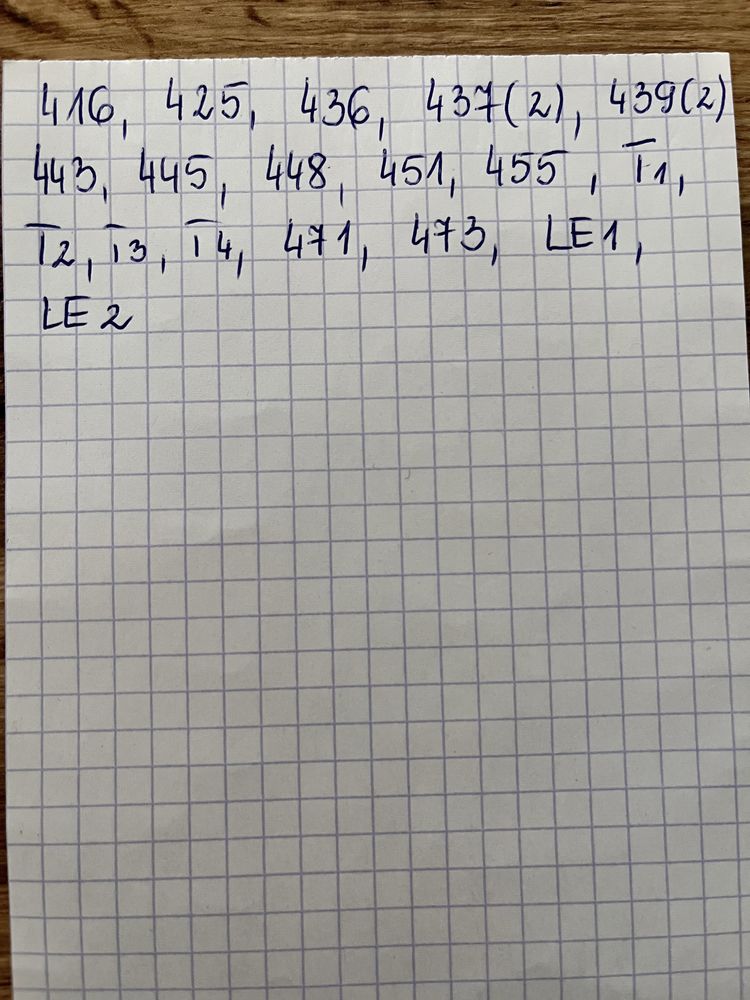 416, 425, 436, 437(2), 439(2)
443, 445, 448, 451, 455, T1,
T2, T3, T4, 471, 473, LE1,
LE2